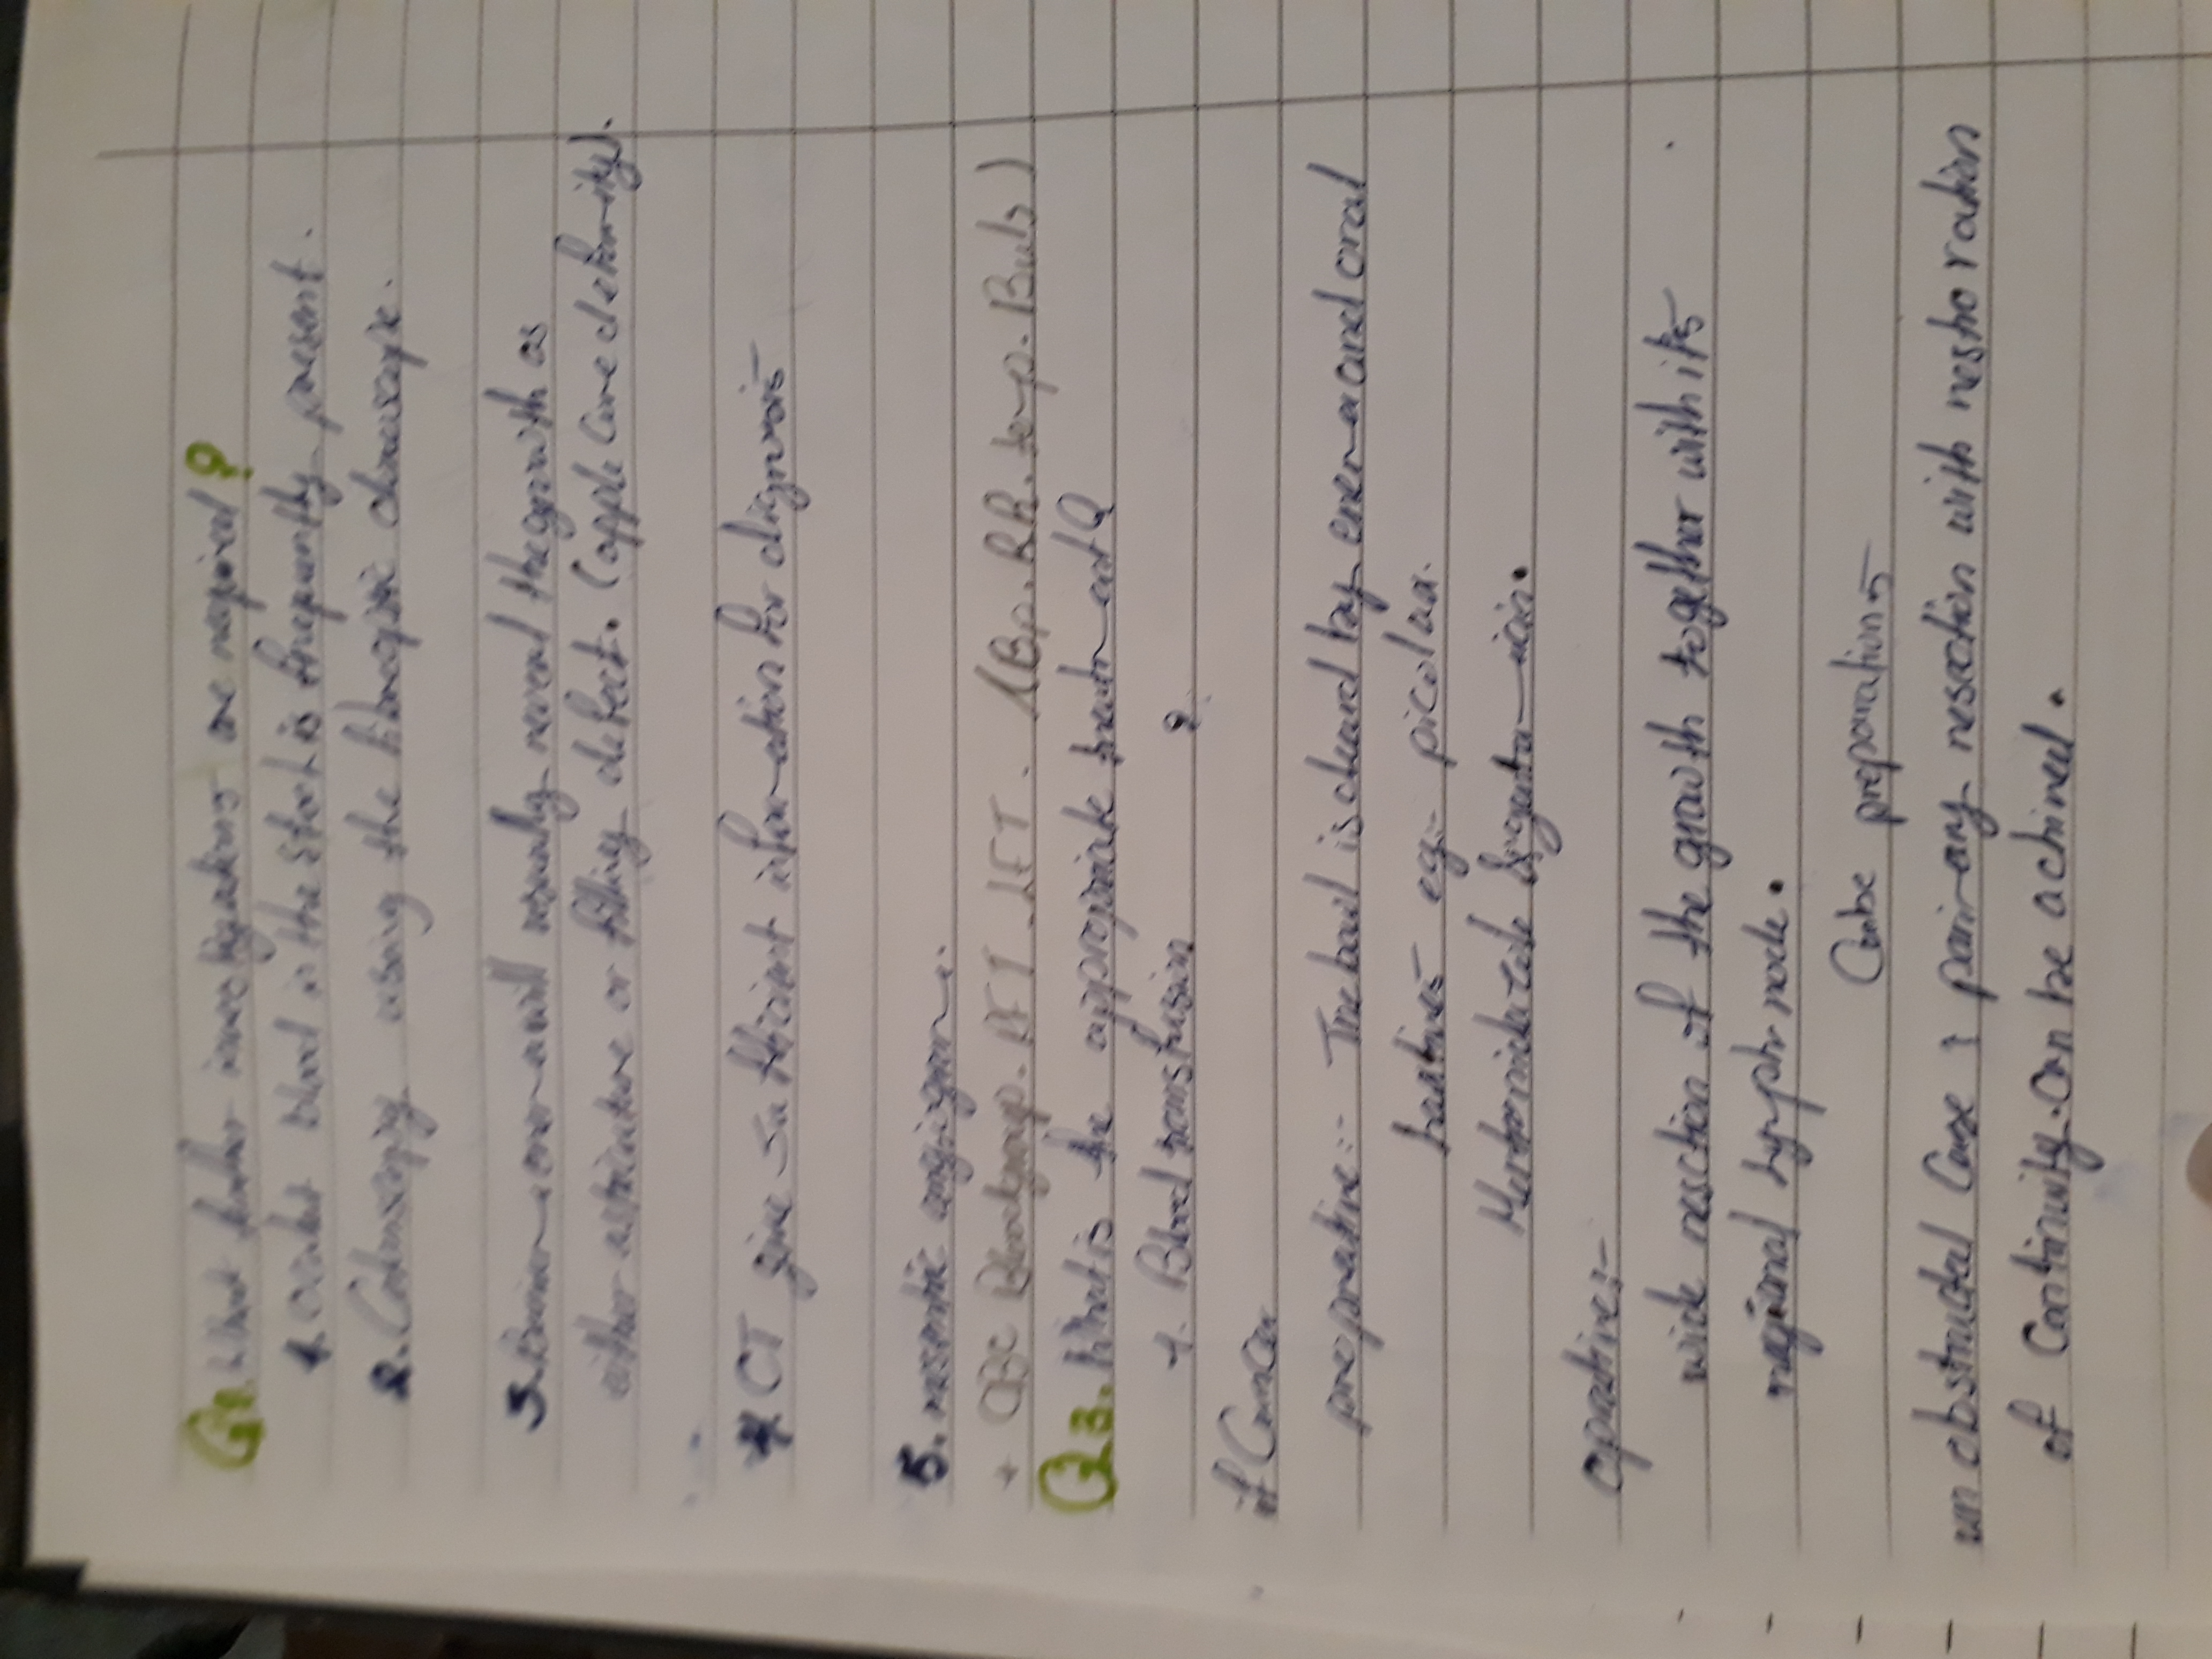 Q1. What further investigations are required ?
1. occult blood in the stool is frequently present.
2. Colonoscopy using the fibreoptic
3. Barium enema will usually reveal the growth as
either a stricture or filling defect. (apple core deformity).
4 CT give sufficient information for diagnosis
5. mesentric angiogram.
+ CBC Blood group. RFT. LFT. (BP. RR. temp. Buls)
Q 3. What is the appropriate treatment
+. Blood transfusion ?
if Cancer
preoprative:- The bowl is cleared by enema and oral
eg:- picolax.
operative:-
wide resection of the growth together with its
regional lymph node.
preparation
un obstructed Case : primary resection with restoration
of Continuity can be achived.